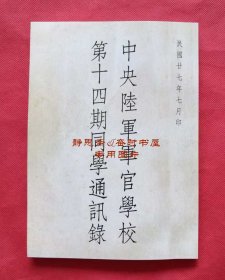 民國廿七年七月印
中央陸軍軍官學校
第十四期同學通訊錄